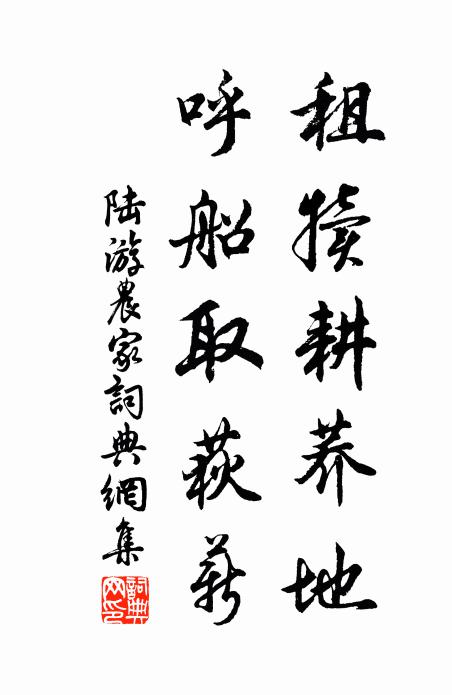 租犢耕荞地
呼船取荻薪
陆游農家詞典網集
詞典網印